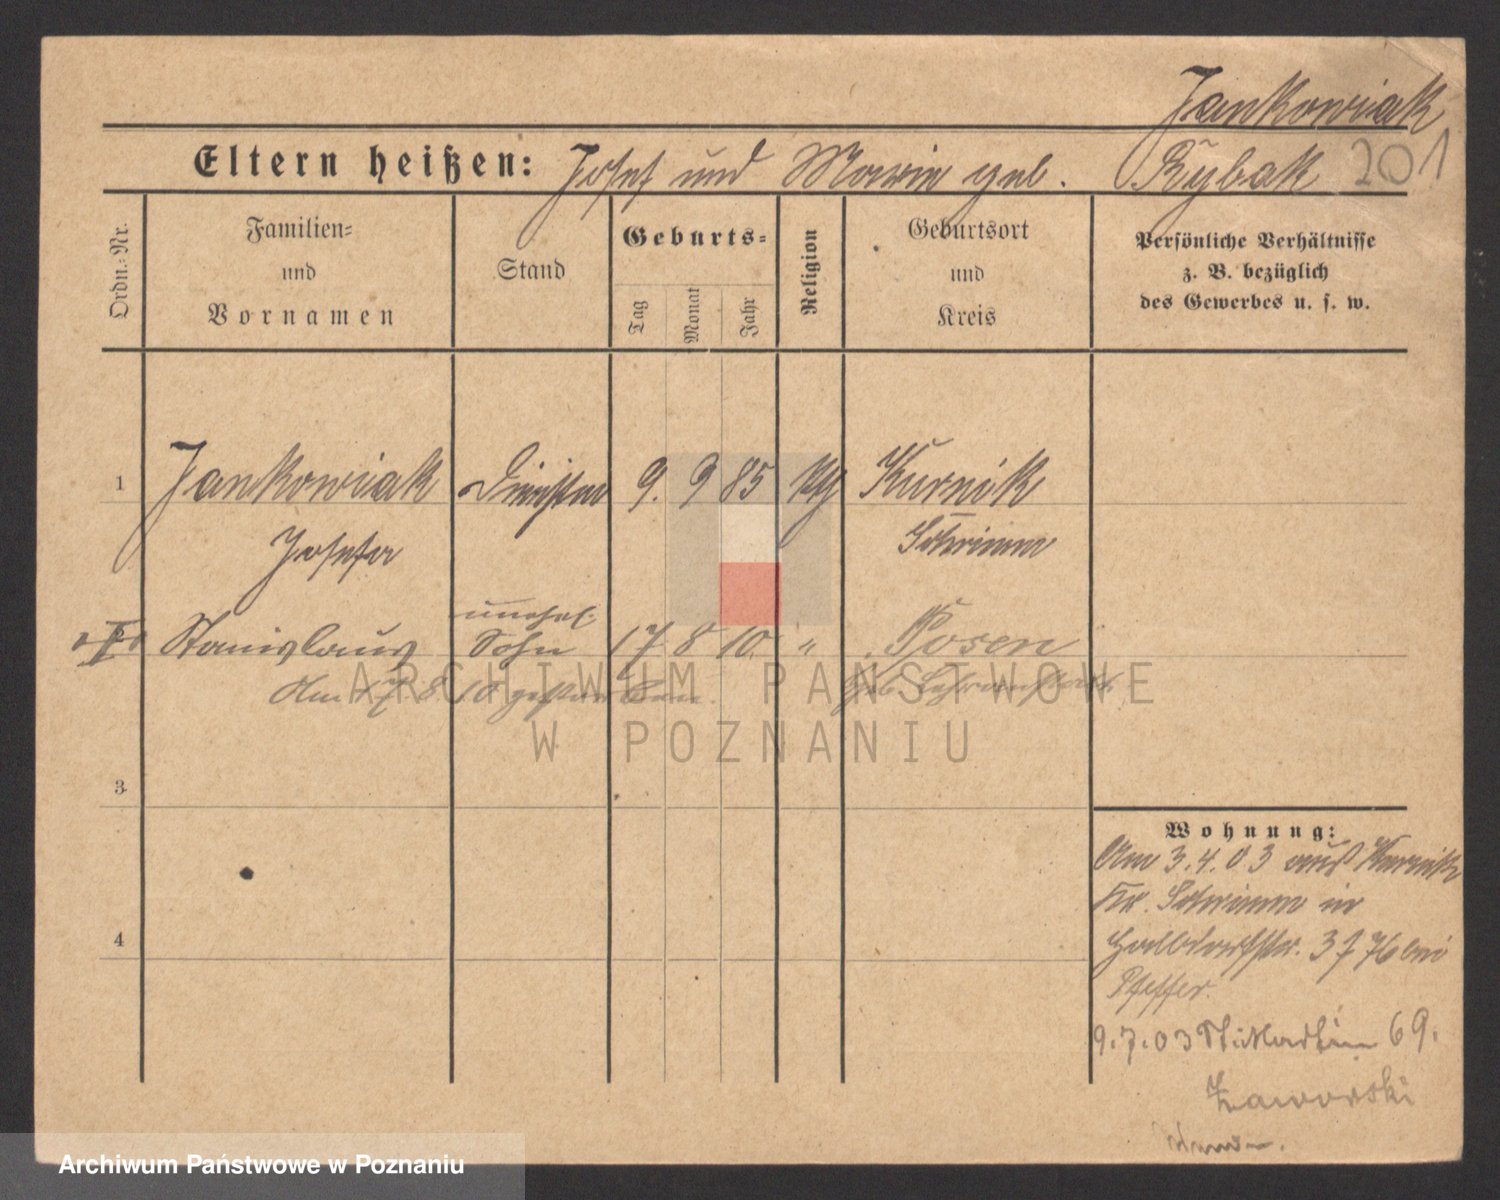 Jankowiak
Eltern heißen: Josef und Marie geb. Rybak 201
Ordn.-Nr.
Familien-
und
Vornamen
Stand
Geburts-
Tag
Monat
Jahr
Religion
Geburtsort
und
Kreis
Persönliche Verhältnisse
z. B. bezüglich
des Gewerbes u. s. w.
1 Jankowiak 9. 9 85 Kurnik
Josefa Schrimm
Stanislaus unehel.
Sohn 17 8 10. " Posen
Am 17 8 10 gestorben.
ARCHIWUM PAŃSTWOWE
W POZNANIU
3
4
Wohnung:
Am 3.4.03 aus Kurnik
Kr. Schrimm in
Halbdorfstr. 37 bei
Pfeffer.
9.7.03 St. Martin 69.
Zaworski
Archiwum Państwowe w Poznaniu